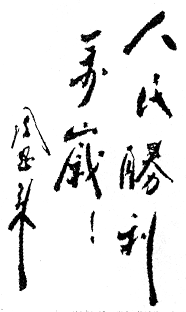 人民勝利
萬歲！
周恩來